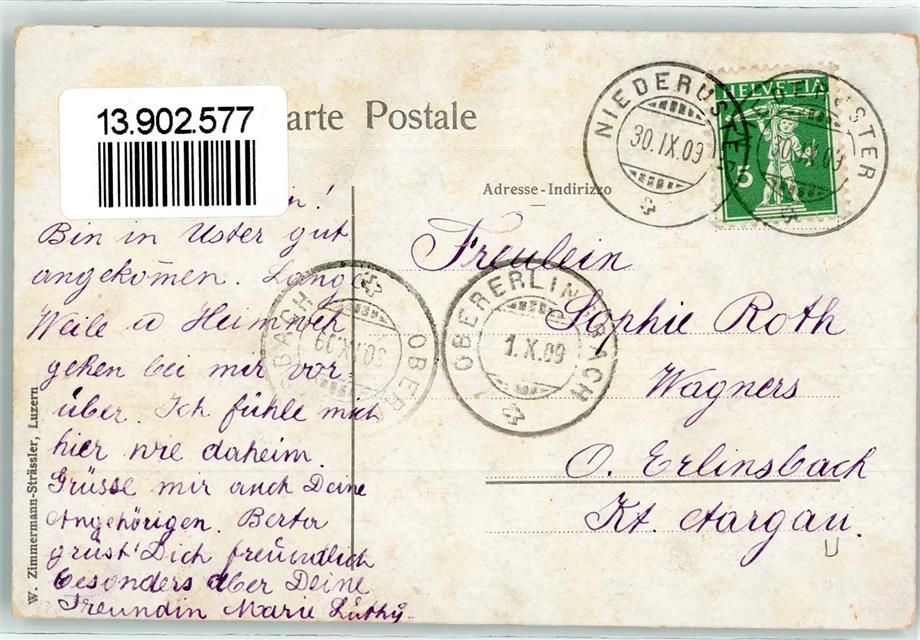 13.902.577
arte Postale
NIEDERUSTER
30.IX.09
HELVETIA
5
NIEDERUSTER
30.IX.09
Adresse - Indirizzo
Bin in Uster gut
angekom̅en. Lange
Weile u Heimweh
gehen bei mir vor-
über. Ich fühle mich
hier wie daheim.
Grüsse mir auch Deine
Angehörigen. Berta
grüst Dich freundlich
besonders aber Deine
Freundin Marie Lüthy.
Freulein
Sophie Roth
Wagners
O. Erlinsbach
Kt. Aargau.
OBERERLINSBACH
1.X.09
OBER BACH
30.IX.09
W. Zimmermann-Strässler, Luzern